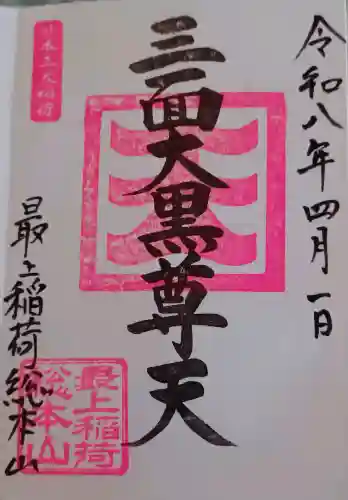 令和八年四月一日
三面大黒尊天
日本三大稲荷
最上稲荷総本山
最上稲荷
総本山